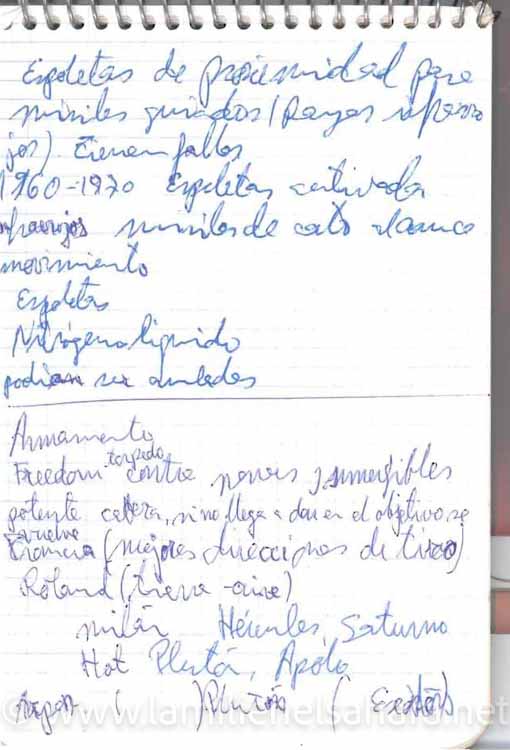 Espoletas de proximidad para
misiles guiados (Rayos infrarro
jos) tienen fallos
1960-1970 Espoletas activada
infrarrojos misiles de corto alcance
movimiento
Espoletas
Nitrógeno liquido
podian ser anulados
Armamento
torpedo
Freedom contra naves sumergibles
potente cabeza, si no llega a dar en el objetivo, se
vuelve
Francia (mejores direcciones de tiro)
Roland (tierra-aire)
milán Hércules, Saturno
Hot Plutón, Apolo
( ) Plutón (
© www.lamilienelsahara.net